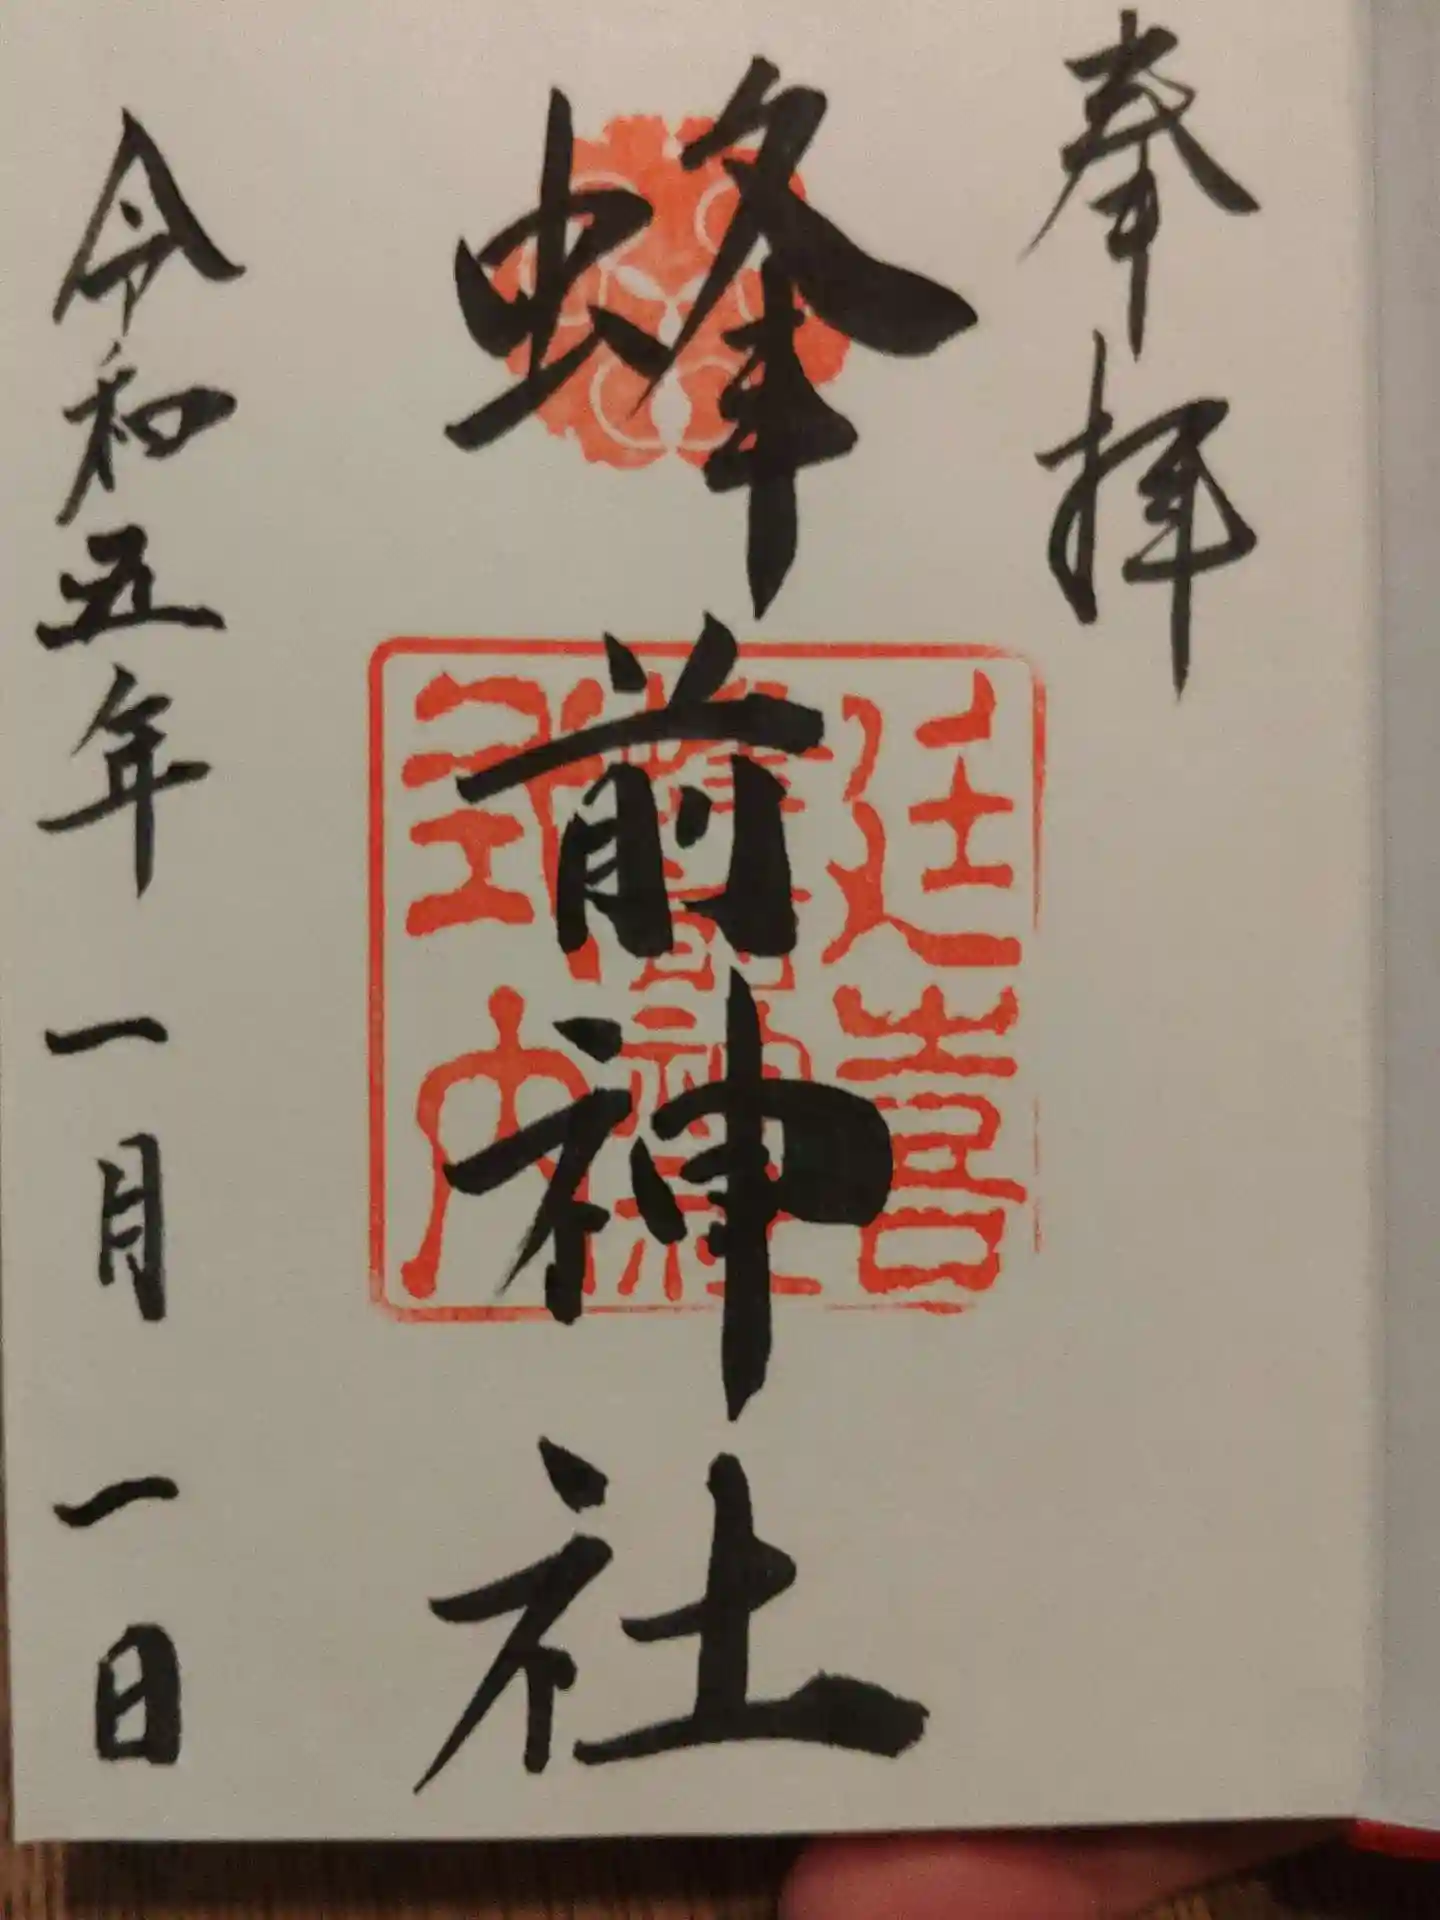 奉拝
蜂前神社
延喜
蜂前神社
式内
令和五年一月一日